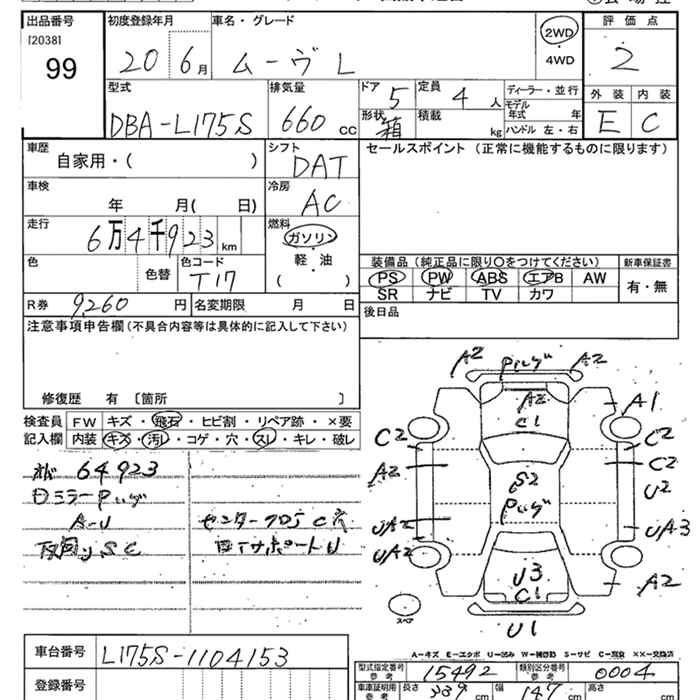 出品番号 初度登録年月 車名・グレード 2WD 評価点
[2038] 20 6月 ムーヴL ・ 2
99 4WD
型式 排気量 ドア 5 定員 4 人 ディーラー・並行 外装 内装
DBA-L175S 660 cc 形状 箱 積載 kg モデル年式 年 E C
ハンドル 左・右
車歴 自家用・( ) シフト DAT セールスポイント (正常に機能するものに限ります)
車検 年 月( 日) 冷房 AC
走行 6万4千923 km 燃料 ガソリン
軽・油
・
( )
色 色替 色コード T17
装備品 (純正品に限り〇をつけてください) 新車保証書
PS PW ABS エアB AW 有・無
SR ナビ TV カワ
R券 9,260 円 名変期限 月 日
後日品
注意事項申告欄(不具合内容等は具体的に記入して下さい)
修復歴 有 〔箇所 〕
検査員 FW キズ・飛石・ヒビ割・リペア跡・×要
記入欄 内装 キズ・汚レ・コゲ・穴・スレ・キレ・破レ
64923
A2 A2
A2
C1
A1
C2 C2
A2 C2
S2 U2
UA2 UA3
UA2
U3 A2
C1
スペア
U1
A-キズ E-エクボ U-凹み W-補修跡 S-サビ C-腐食 XX-交換済
車台番号 L175S-1104153
登録番号
型式指定番号 参考 15492 類別区分番号 参考 0004
車庫証明用 参考 長さ 339 cm 幅 147 cm 高さ cm